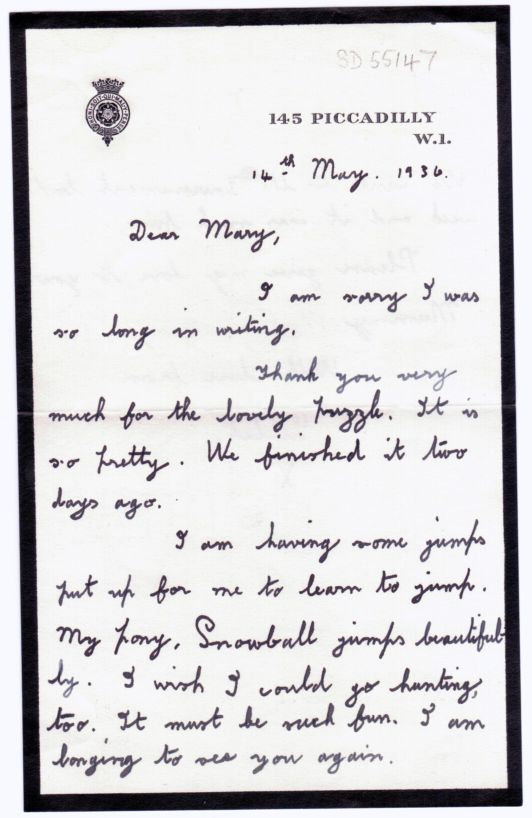 SD 55147
145 PICCADILLY
W.1.
14th May. 1936.
Dear Mary,
I am sorry I was
so long in writing.
Thank you very
much for the lovely puzzle. It is
so pretty. We finished it two
days ago.
I am having some jumps
put up for me to learn to jump.
My pony, Snowball jumps beautiful
ly. I wish I could go hunting,
too. It must be such fun. I am
longing to see you again.